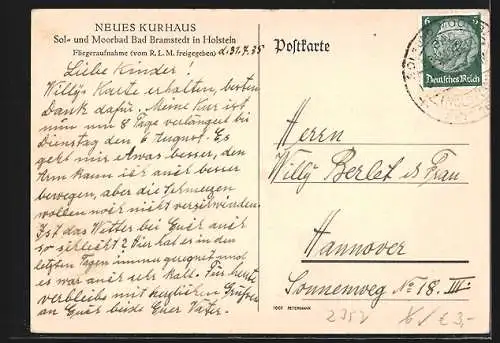 NEUES KURHAUS
Sol- und Moorbad Bad Bramstedt in Holstein
Fliegeraufnahme (vom R. L. M. freigegeben) d. 31.7.35
Liebe Kinder!
Willy's Karte erhalten, besten
Dank dafür. Meine Kur ist
nun um 8 Tage verlängert bis
Dienstag den 6 August. Es
geht mir etwas besser, den
Arm kann ich auch besser
bewegen, aber die Schmerzen
wollen noch nicht verschwinden.
Ist das Wetter bei Euch auch
so schlecht? Hier hat es in den
letzten Tagen immer geregnet und
es war auch sehr kalt. Für heute
verbleibe mit herzlichen Grüßen
an Euch beide Euer Vater.
Postkarte
6 6
Deutsches Reich
Herrn
Willy Berlet u Frau
Hannover
Sonnenweg No 18. III.
1007 PETERMANN
€ 3,-